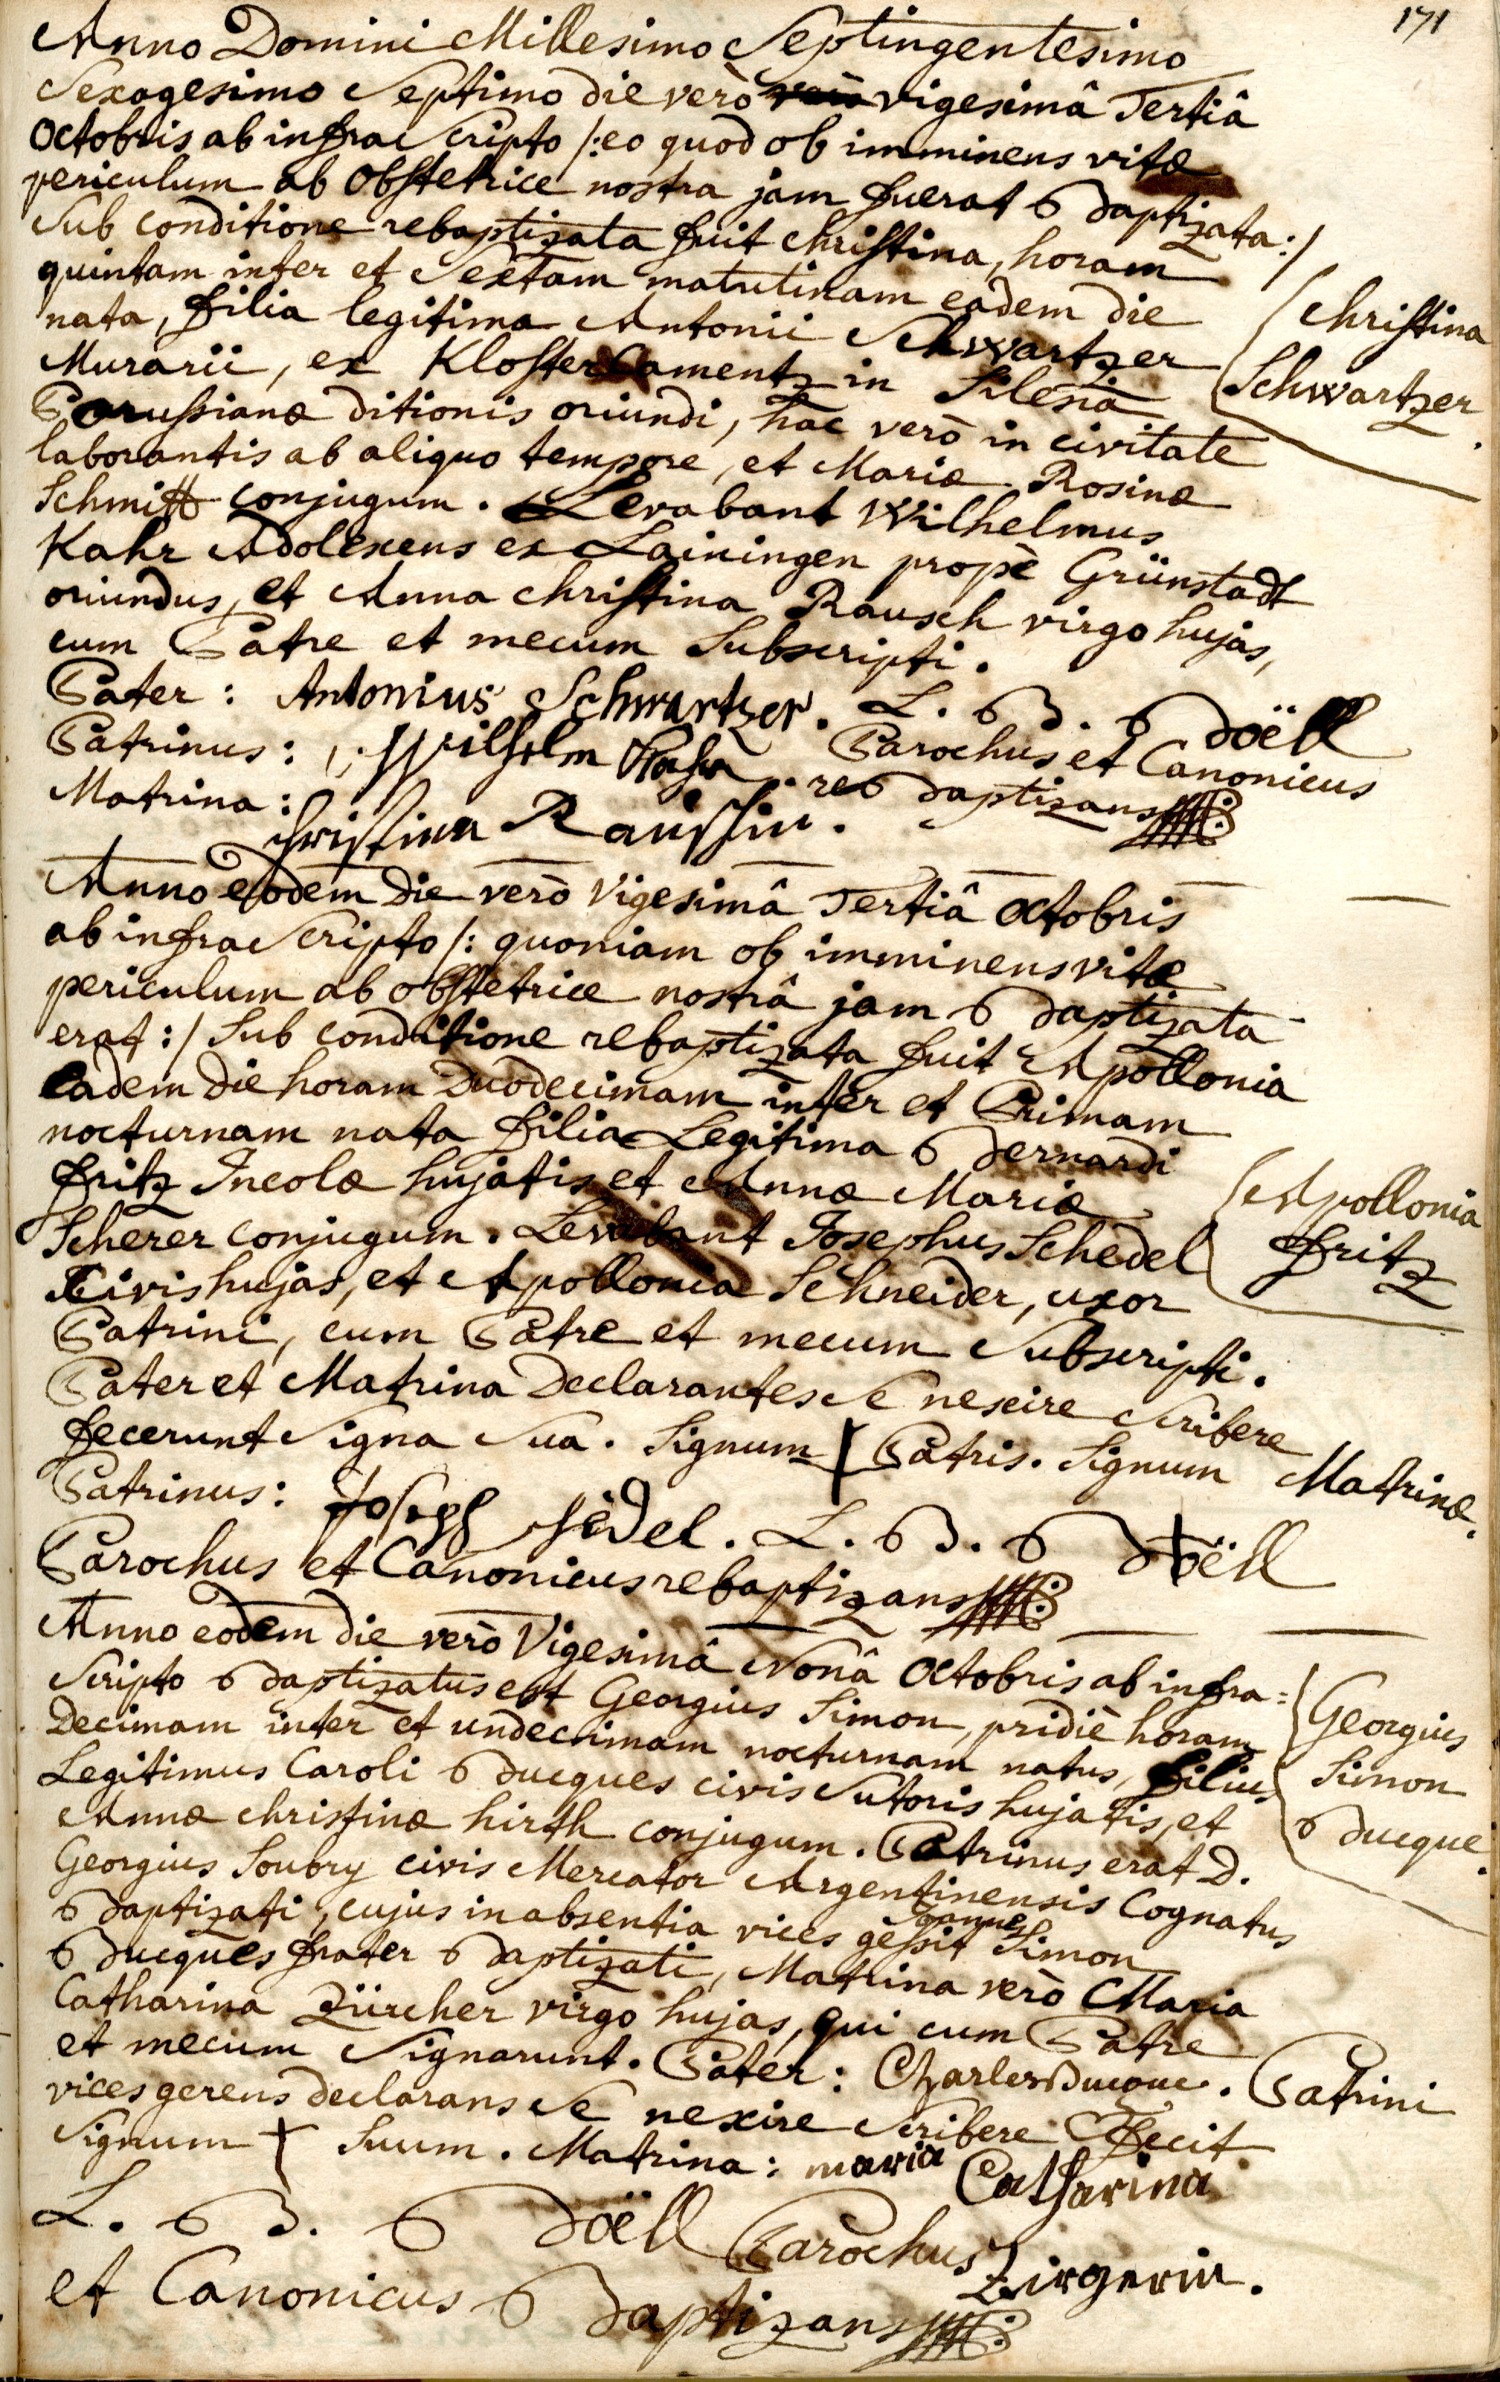 171
Anno Domini Millesimo Septingentesimo
Sexagesimo Septimo die verò vero vigesimâ Tertiâ
Octobris ab infra Scripto /: eo quod ob imminens vitæ
periculum ab Obstetrice nostra jam fuerat Baptizata :/
Sub conditione rebaptizata fuit christina, horam
quintam inter et Sextam matutinam eadem die
nata, filia legitima Antonii Schwartzer
Murarii, ex Kloster Camentz in Silesiâ
Borussianæ ditionis oriundi, hâc verò in civitate
laborantis ab aliquo tempore, et Mariæ Rosinæ
Schmitt conjugum. Levabant Wilhelmus
Kahr Adolescens ex Lainingen propè Grünstadt
oriundus, et Anna christina Rausch virgo hujas,
cum Patre et mecum Subscripti.
christina
Schwartzer.
Pater: Antonius Schwartzer. L. B. Boëll
Patrinus: Wilhelm Kahr Parochus et Canonicus
Matrina: rebaptizans
christina Rauschin.
Anno eodem die verò Vigesimâ Tertiâ Octobris
ab infra Scripto /: quoniam ob imminens vitæ
periculum ab obstetrice nostrâ jam Baptizata
erat :/ Sub conditione rebaptizata fuit Apollonia
eadem die horam Duodecimam inter et Primam
nocturnam nata filia Legitima Bernardi
fritz Incolæ hujatis et Annæ Mariæ
Scherer conjugum. Levabant Josephus Schedel
Civis hujas, et Apollonia Schneider, uxor
Patrini, cum Patre et mecum Subscripti.
Apollonia
fritz
Pater et Matrina Declarantes Se nescire Scribere
fecerunt Signa Sua. Signum + Patris. Signum Matrinæ. +
Patrinus: Joseph schedel. L. B. Boëll
Parochus et Canonicus rebaptizans
Anno eodem die verò Vigesimâ Nonâ Octobris ab infra=
Scripto Baptizatus est Georgius Simon, pridiè horam
Decimam inter et undecimam nocturnam natus, filius
Legitimus Caroli Bucques civis Sutoris hujatis, et
Annæ christinæ hirth conjugum. Patrinus erat D.
Georgius Soubry civis Mercator Argentinensis Cognatus
Baptizati, cujus in absentia vices gessit Joannes Simon
Bucques frater Baptizati, Matrina verò Maria
Catharina Zürcher virgo hujas, qui cum Patre
et mecum Signarunt. Pater: Charles Bucque. Patrini
vices gerens declarans Se nescire Scribere fecit
Signum + Suum. Matrina: maria Catharina
Zirgerin.
Georgius
Simon
Bucque.
L. B. Boëll Parochus
et Canonicus Baptizans